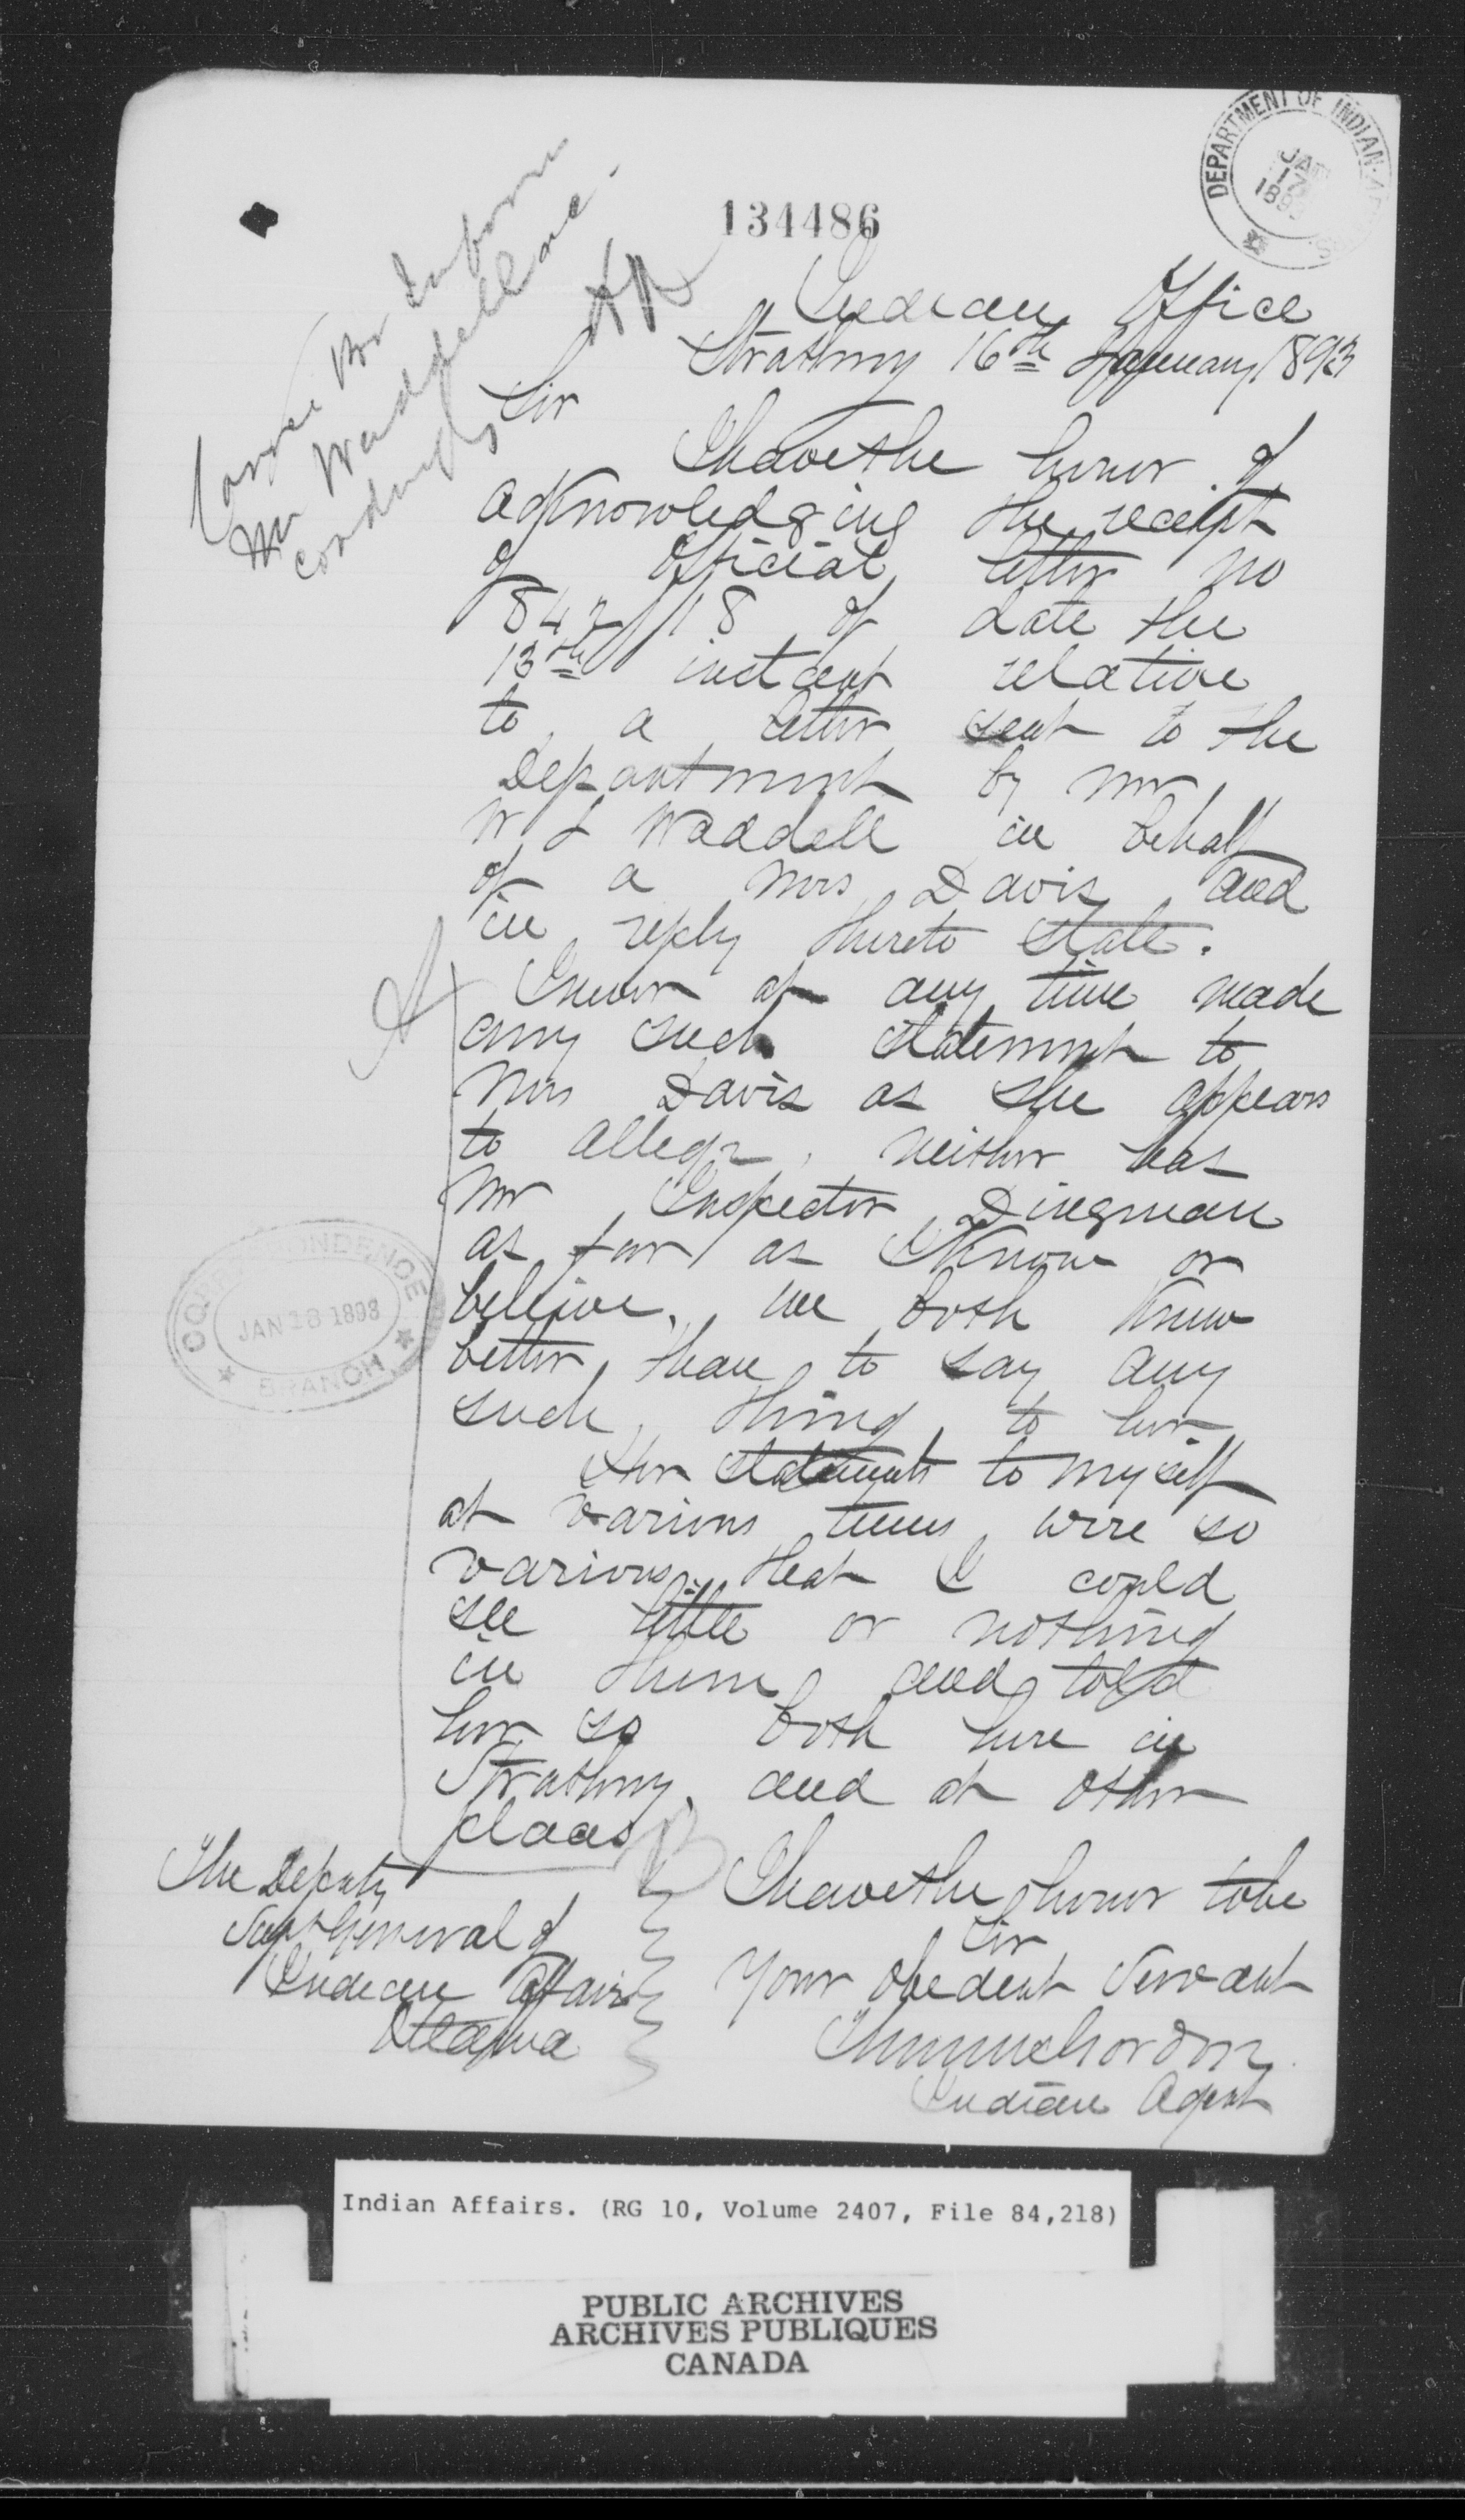 DEPARTMENT OF INDIAN
JAN
17
189
134486
Inform
Mr Waddell
Indian Office
Strathroy 16th January 1893
Sir
I have the honor of
acknowledging the receipt
of official letter no
84218 of date the
13th instant relative
to a letter sent to the
Department by Mr
W L Waddell in behalf
of a Mrs Davis and
in reply thereto state.
A
I never at any time made
any such statement to
Mrs Davis as she appears
to allege, neither has
Mr Inspector Dingman
as far as I know or
believe, we both knew
better than to say any
such thing to her
Her statements to myself
at various times were so
various that I could
see little or nothing
in them and told
her so both here in
Strathroy, and at other
places
B
CORRESPONDENCE
JAN 18 1893
BRANCH
I have the honor to be
Sir
Your obedent Servant
Gordon
Indian Agent
The Deputy
Supt General of
Indian Affairs
Ottawa
Indian Affairs. (RG 10, Volume 2407, File 84,218)
PUBLIC ARCHIVES
ARCHIVES PUBLIQUES
CANADA